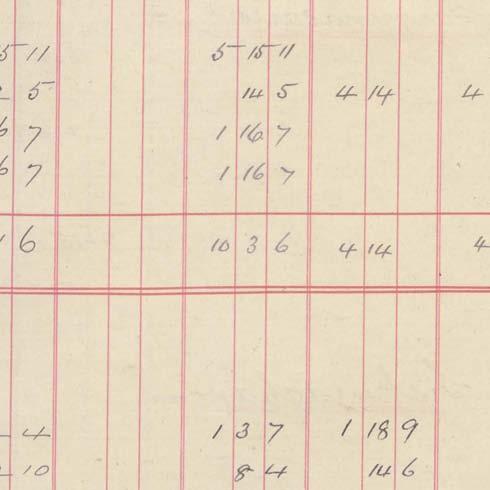 5 11 5 15 11
2 5 14 5 4 14 4
6 7 1 16 7
6 7 1 16 7
6 10 3 6 4 14 4
4 1 3 7 1 18 9
10 8 4 14 6